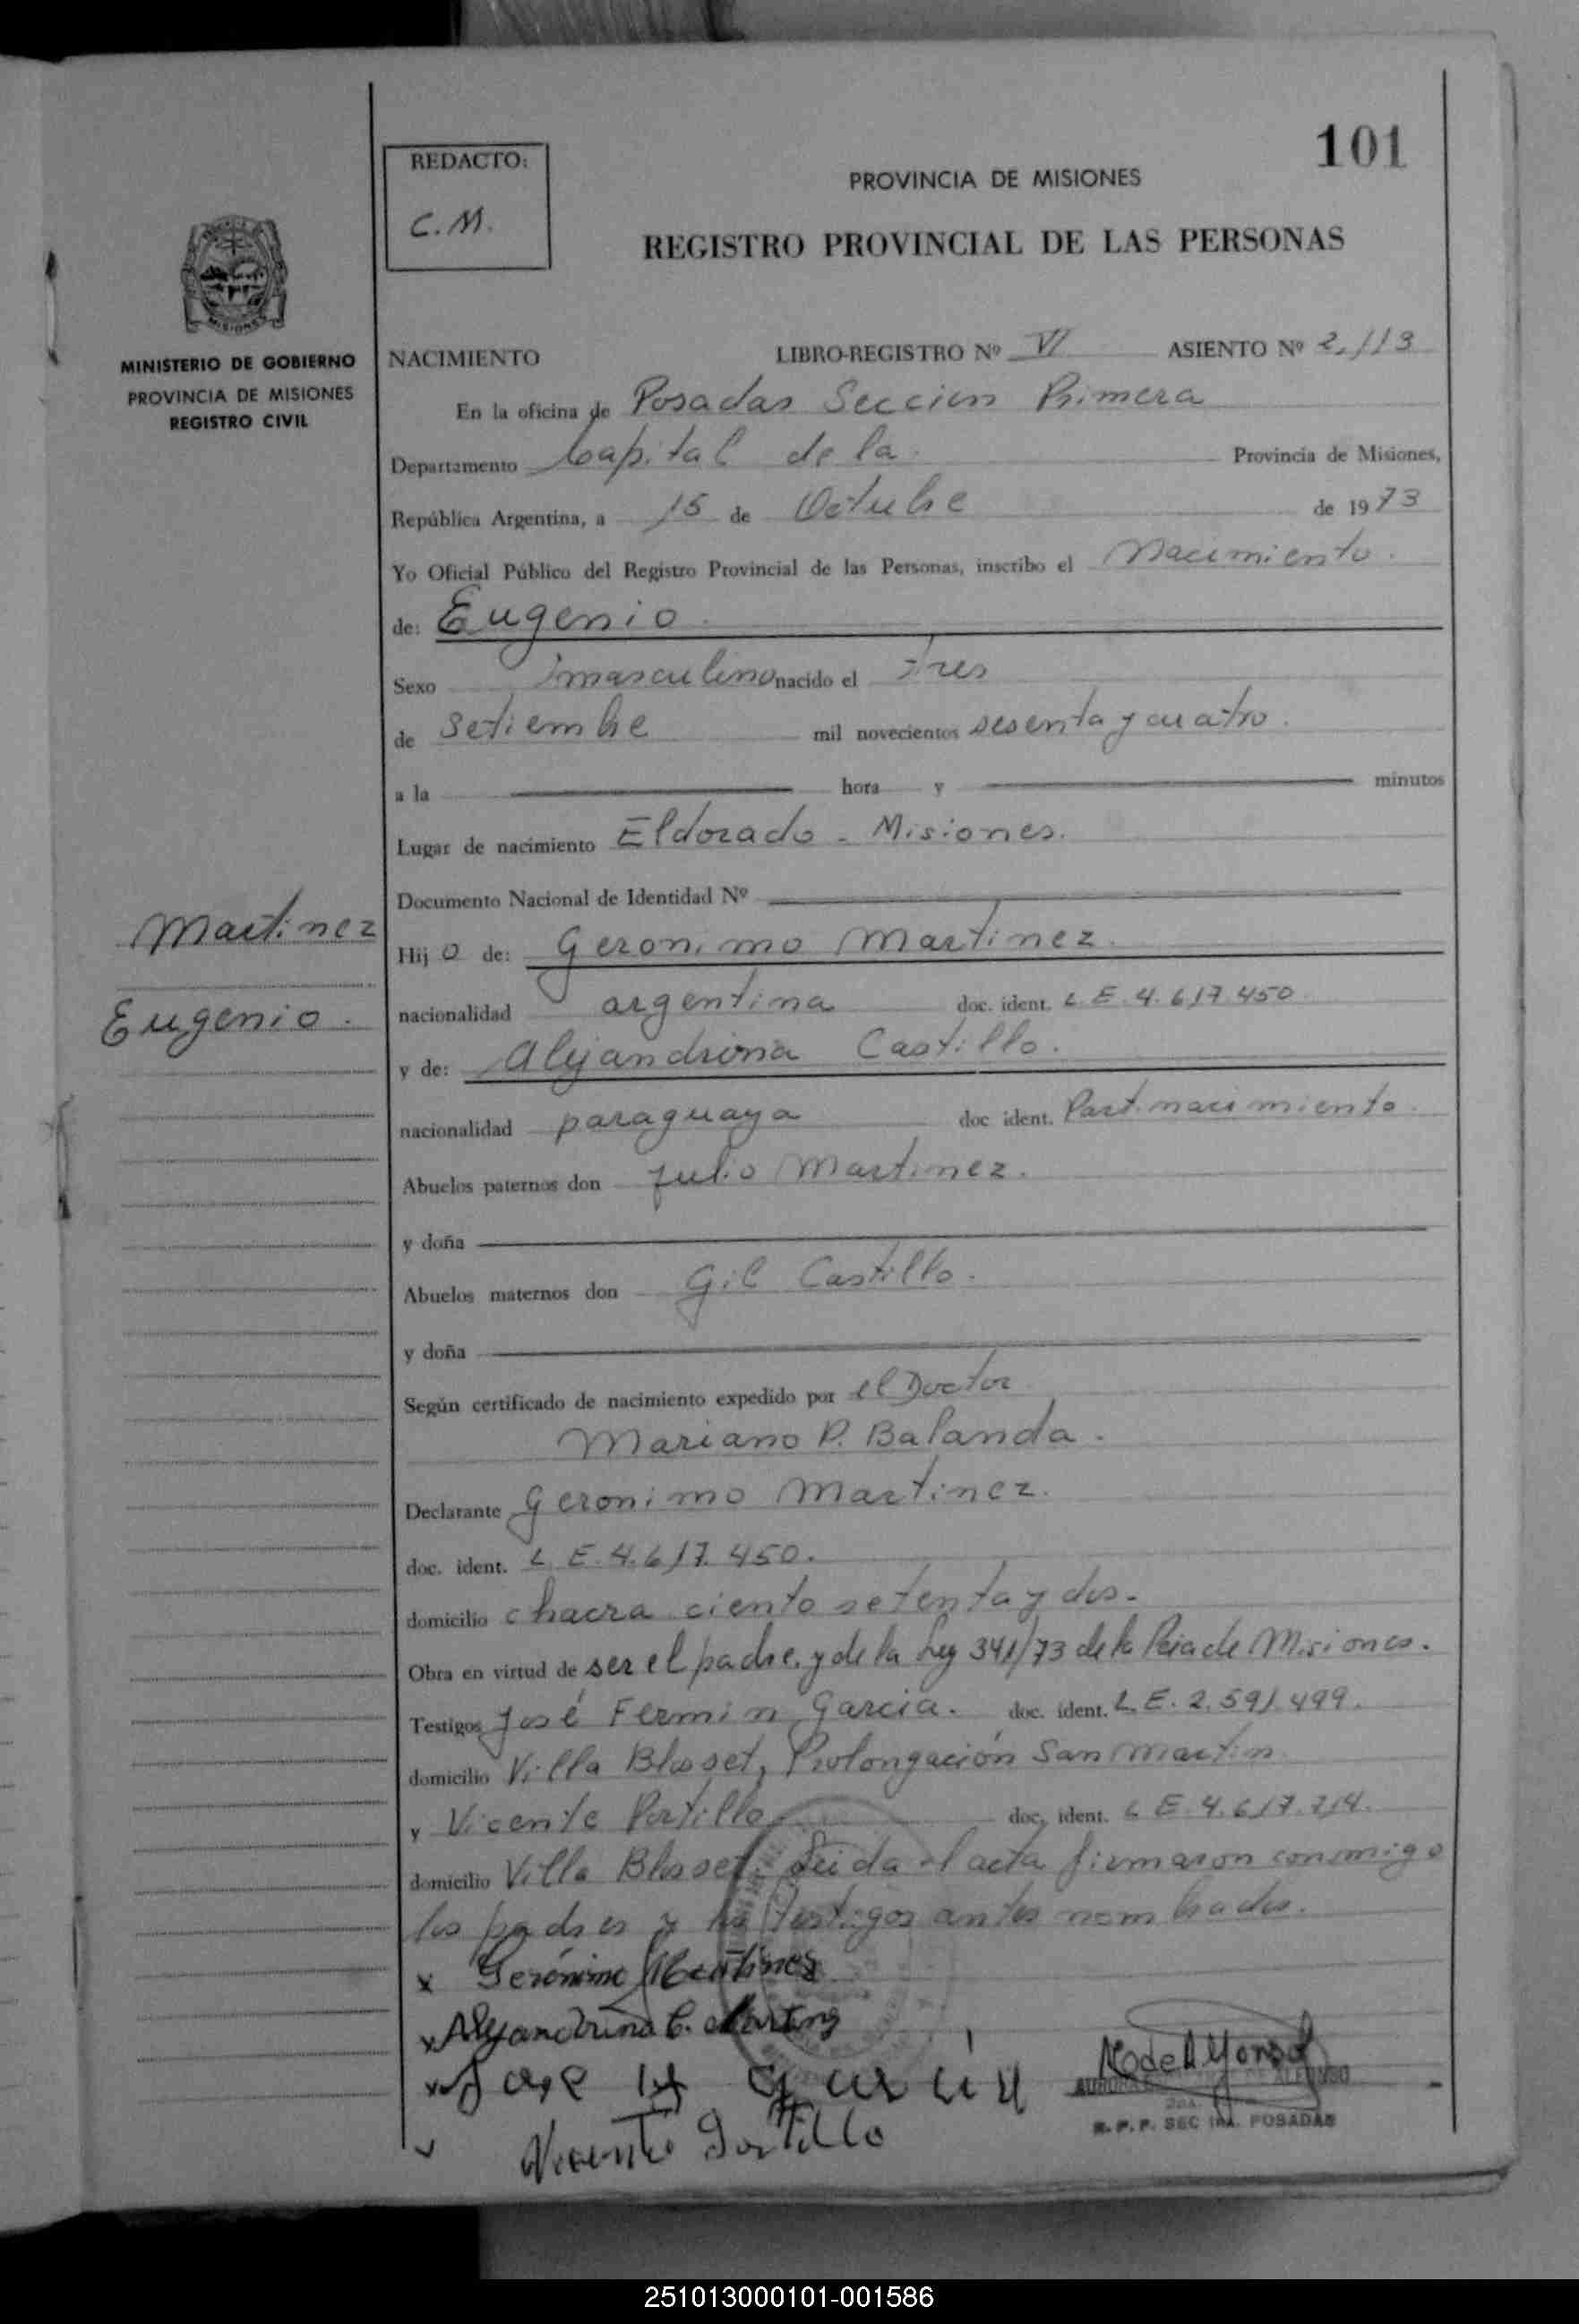 101
REDACTO:
C.M.
PROVINCIA DE MISIONES
REGISTRO PROVINCIAL DE LAS PERSONAS
MISIONES
MINISTERIO DE GOBIERNO
PROVINCIA DE MISIONES
REGISTRO CIVIL
NACIMIENTO LIBRO-REGISTRO Nº VI ASIENTO Nº 2.113
En la oficina de Posadas Seccion Primera
Departamento Capital de la Provincia de Misiones,
República Argentina, a 15 de Octubre de 1973
Yo Oficial Público del Registro Provincial de las Personas, inscribo el Nacimiento.
de: Eugenio.
Sexo masculino nacido el tres
de Setiembre mil novecientos sesenta y cuatro.
a la hora y minutos
Lugar de nacimiento Eldorado - Misiones.
Documento Nacional de Identidad Nº
Martinez
Eugenio.
Hijo de: Geronimo Martinez.
nacionalidad argentina doc. ident. L E. 4.617.450
y de: Alejandrina Castillo.
nacionalidad paraguaya doc ident. Part. nacimiento.
Abuelos paternos don Julio Martinez.
y doña
Abuelos maternos don Gil Castillo.
y doña
Según certificado de nacimiento expedido por el Doctor
Mariano P. Balanda.
Declarante Geronimo Martinez.
doc. ident. L E. 4.617.450.
domicilio chacra ciento setenta y dos.
Obra en virtud de ser el padre, y de la Ley 341/73 de la Pcia de Misiones.
Testigos José Fermin Garcia. doc. ident. L E. 2.591.499.
domicilio Villa Blosset, Prolongación San Martin
y Vicente Portillo doc, ident. L E. 4.617.214.
domicilio Villa Blosset. Leida el acta firmaron conmigo
los padres y los testigos antes nombrados.
x Gerónimo Martinez
x Alejandrina C. Martinez
x Jose F Garcia
Vicente Portillo
R.P.P. SEC 1RA. POSADAS
251013000101-001586